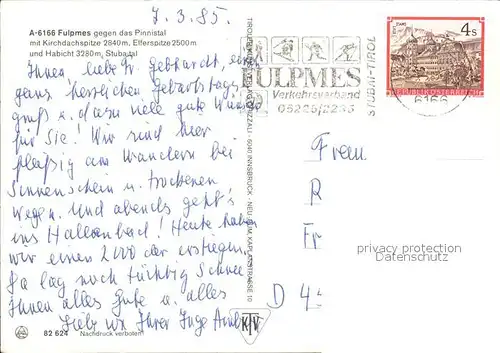 7. 3. 85.
A-6166 Fulpmes gegen das Pinnistal
mit Kirchdachspitze 2840m, Elferspitze 2500m
und Habicht 3280m, Stubaital
Ihnen, liebe Fr. Gebhardt, einen
ganz herzlichen Geburtstags-
gruß u. dazu viele gute Wünsche
für Sie! Wir sind hier
fleißig am Wandern bei
Sonnenschein u. trockenen
Wegen. Und abends geht's
ins Hallenbad! Heute haben
wir einen 2000 der erstiegen,
da lag noch tüchtig Schnee
Ihnen alles Gute u. alles
Liebe von Ihrer Inge
82 624 Nachdruck verboten
KTV
FULPMES
Verkehrsverband
05225/2235
STUBAI-TIROL
6166
4 S
REPUBLIK ÖSTERREICH
Frau
R
Fr
D 4
privacy protection
Datenschutz